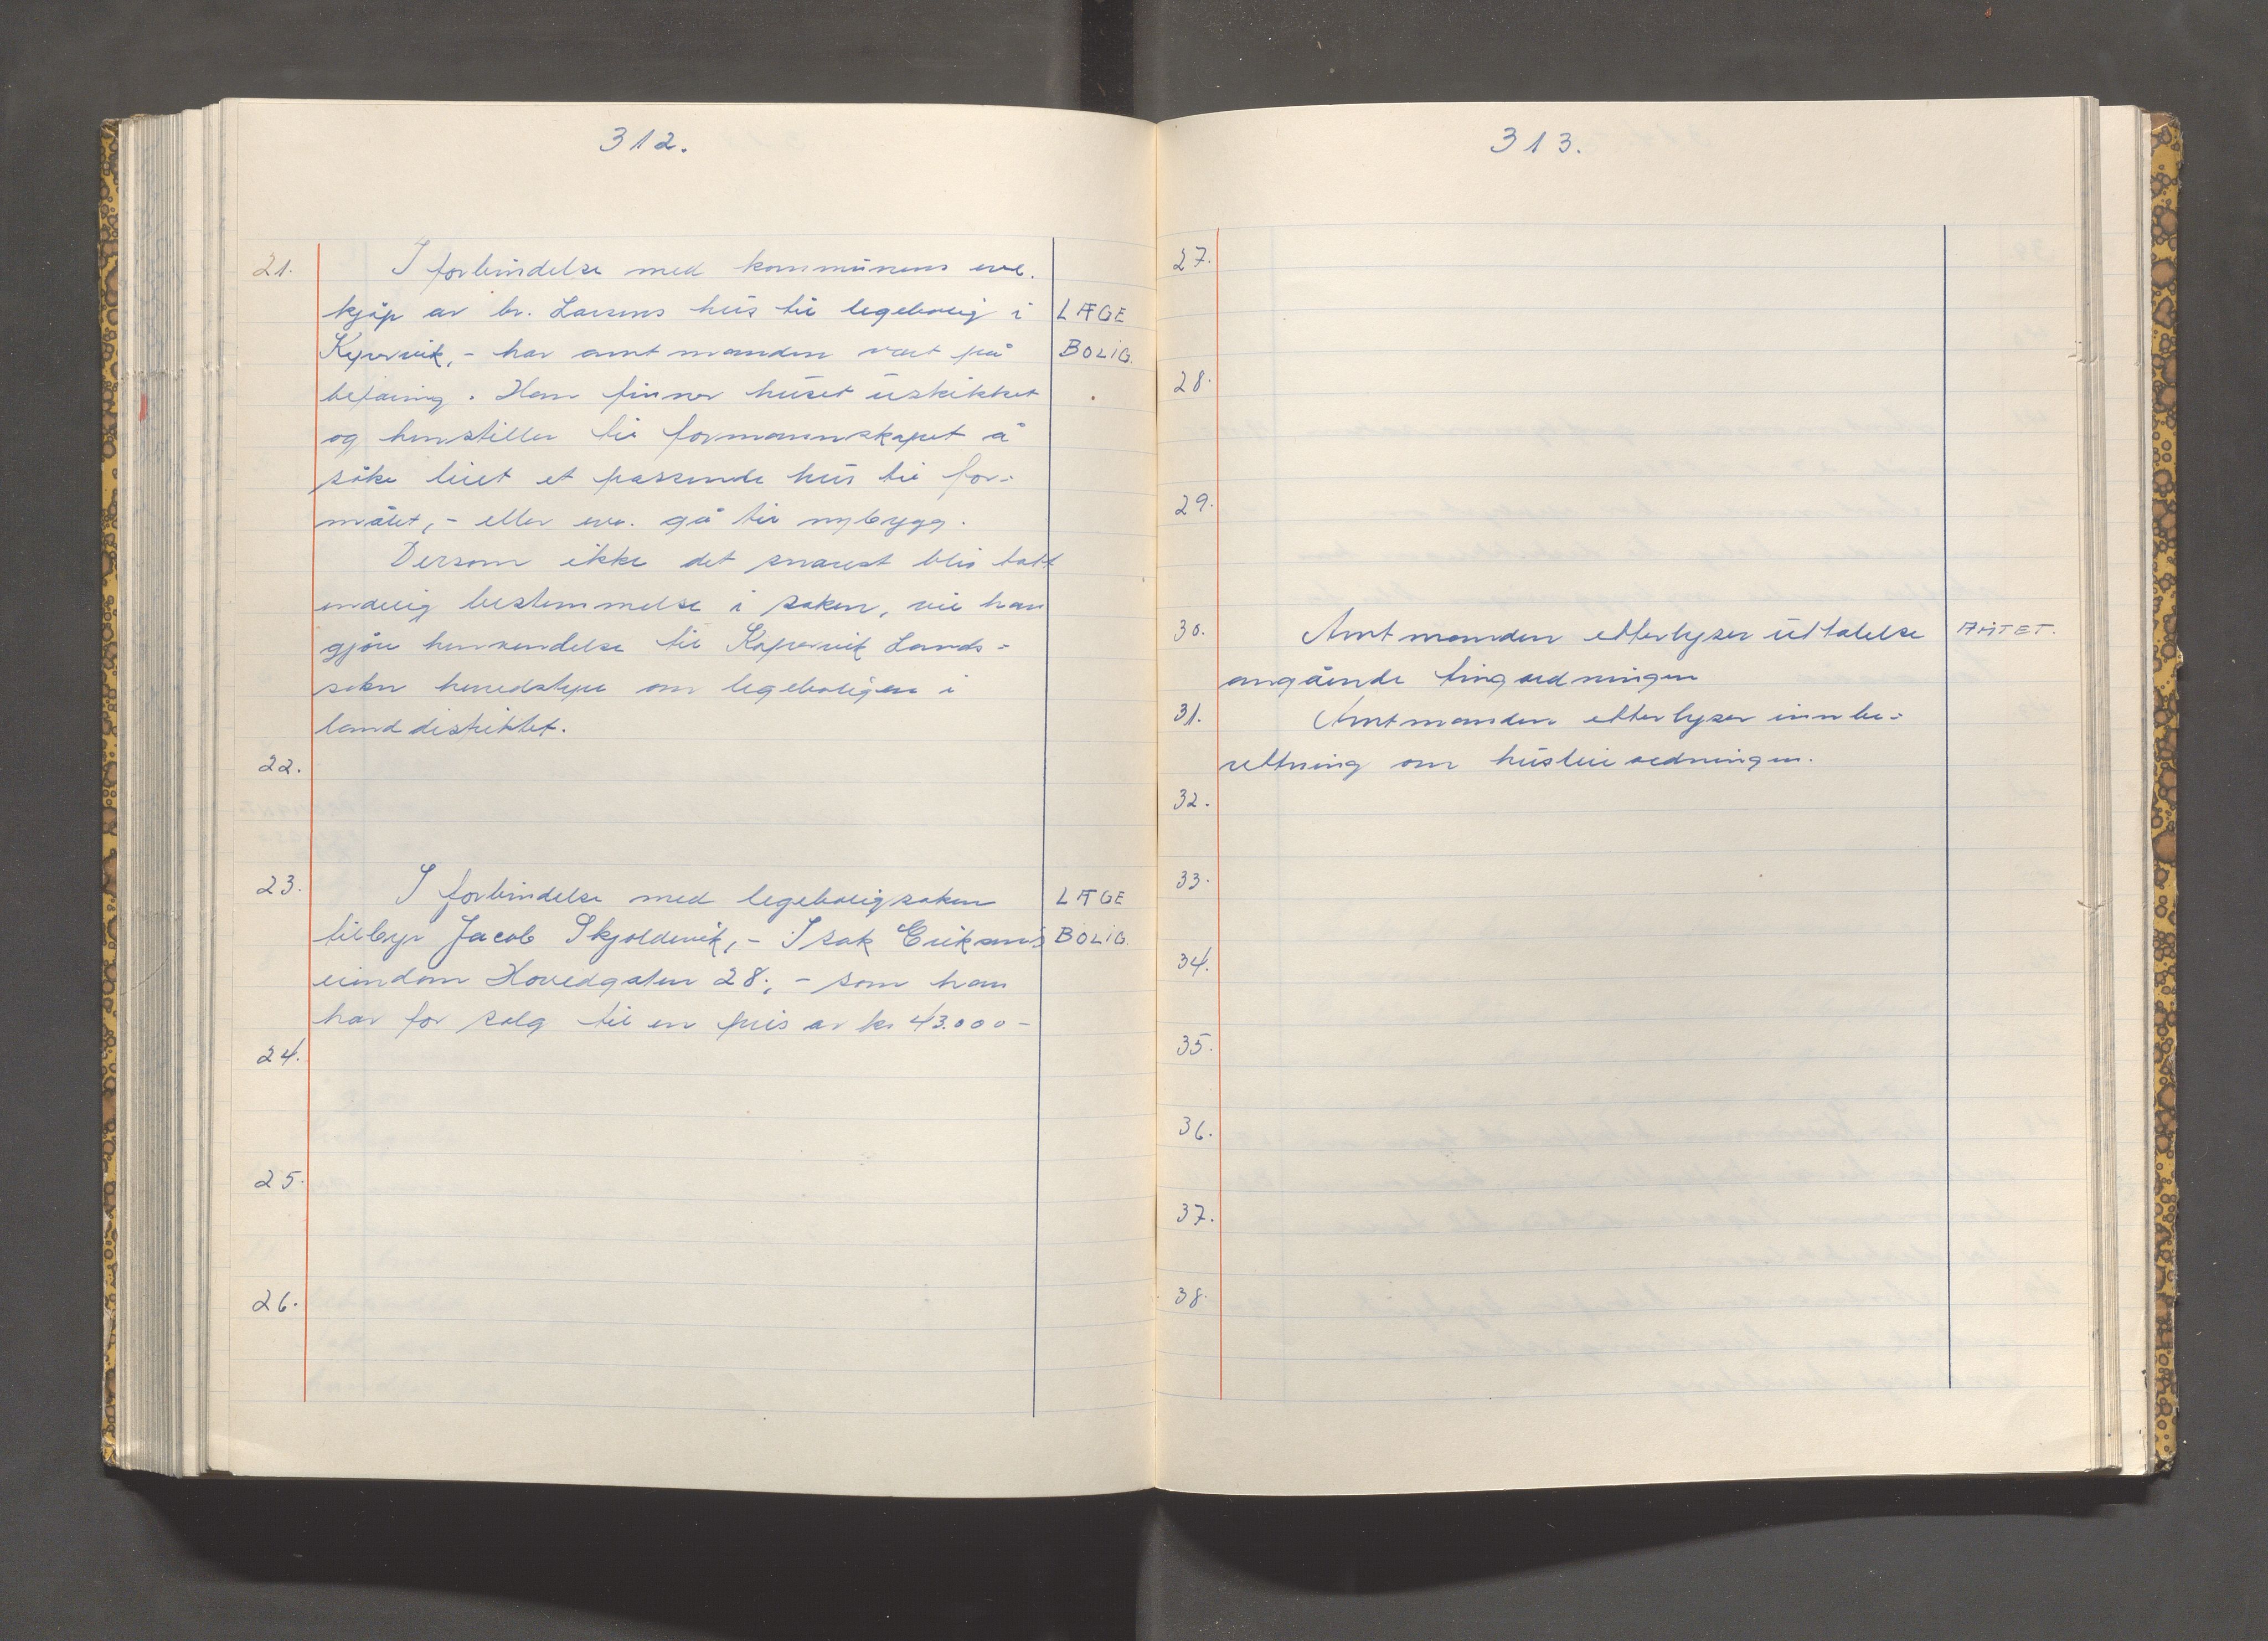 312.
21. I forbindelse med kommunens eve.
kjøp av br. Larsens hus til legebolig i LÆGE
Kopervik, - har amtmanden vært på BOLIG.
befaring. Han finner huset uskikket
og henstiller til formannskapet å
søke leiet et passende hus til for-
målet, - eller eve. gå til nybygg.
Dersom ikke det snarest blir tatt
endelig bestemmelse i saken, vil han
gjøre henvendelse til Kopervik Lands-
sokn herredstyre om legeboligen i
landdistriktet.
22.
23. I forbindelse med legeboligsaken LÆGE
tilbyr Jacob Skjoldevik, - Isak Eriksens BOLIG.
eiendom Hovedgaten 28, - som han
har for salg til en pris av kr 43.000-
24.
25.
26.
313.
27.
28.
29.
30. Amtmanden etterlyser uttalelse
angående tingordningen
31. Amtmanden etterlyser innbe-
retning om husleieordningen.
32.
33.
34.
35.
36.
37.
38.